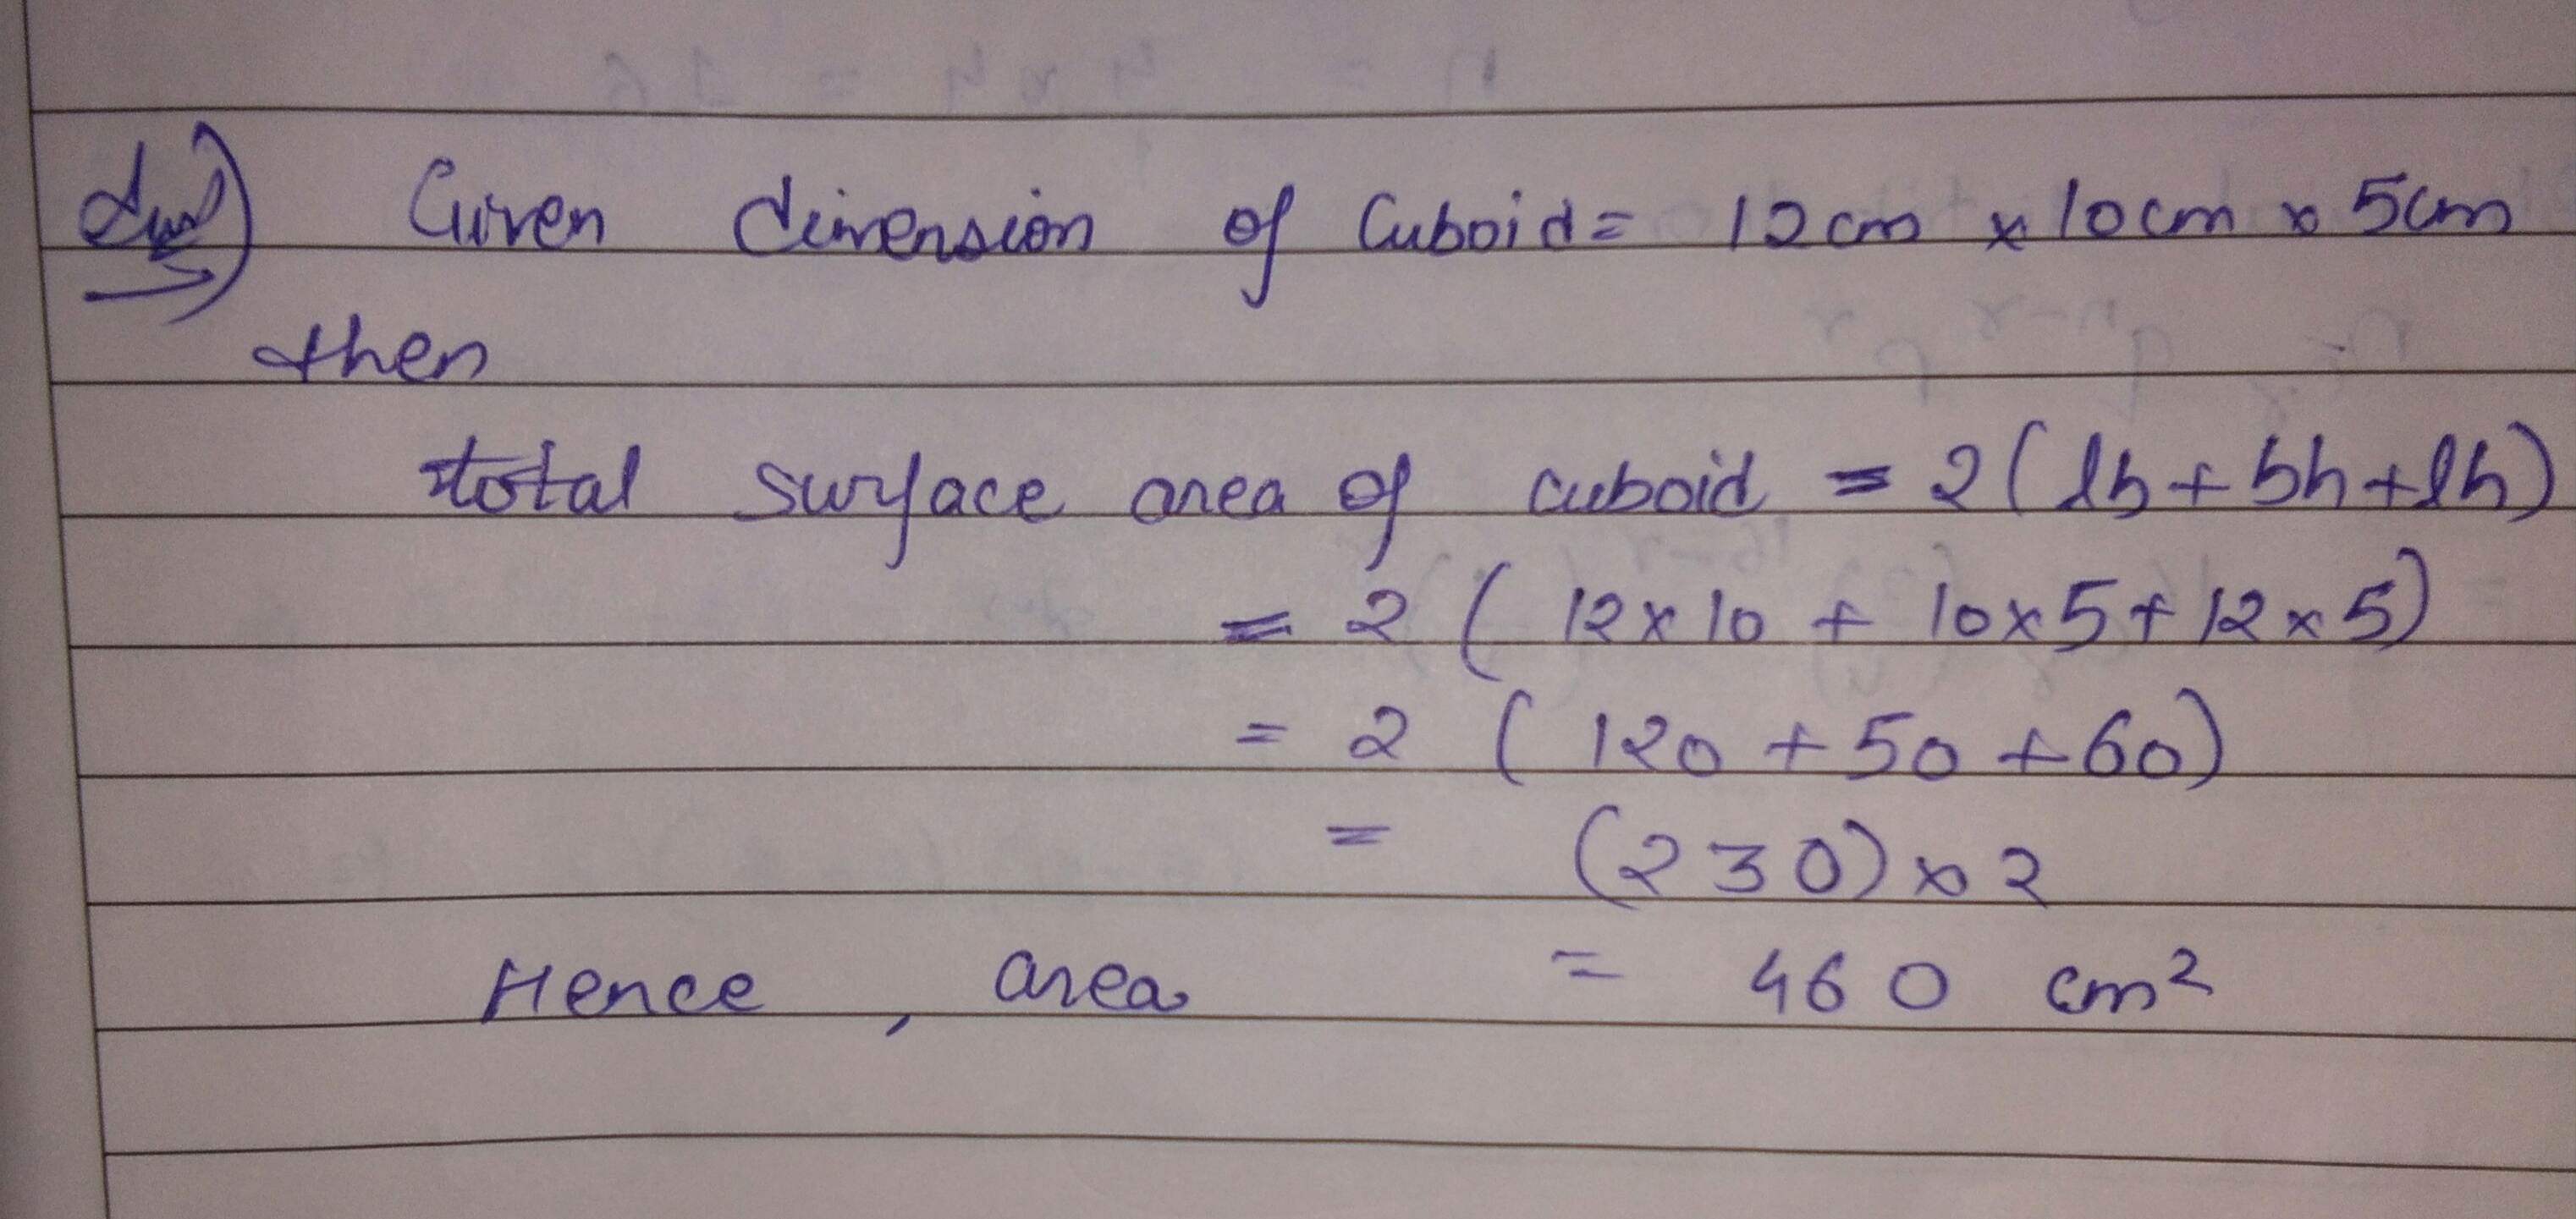 Given dimension of Cuboid = 12cm × 10cm × 5cm
then
total surface area of cuboid = 2(lb+bh+lh)
= 2 ( 12×10 + 10×5+12×5)
= 2 ( 120 +50 +60)
= (230)×2
Hence , area = 460 cm²